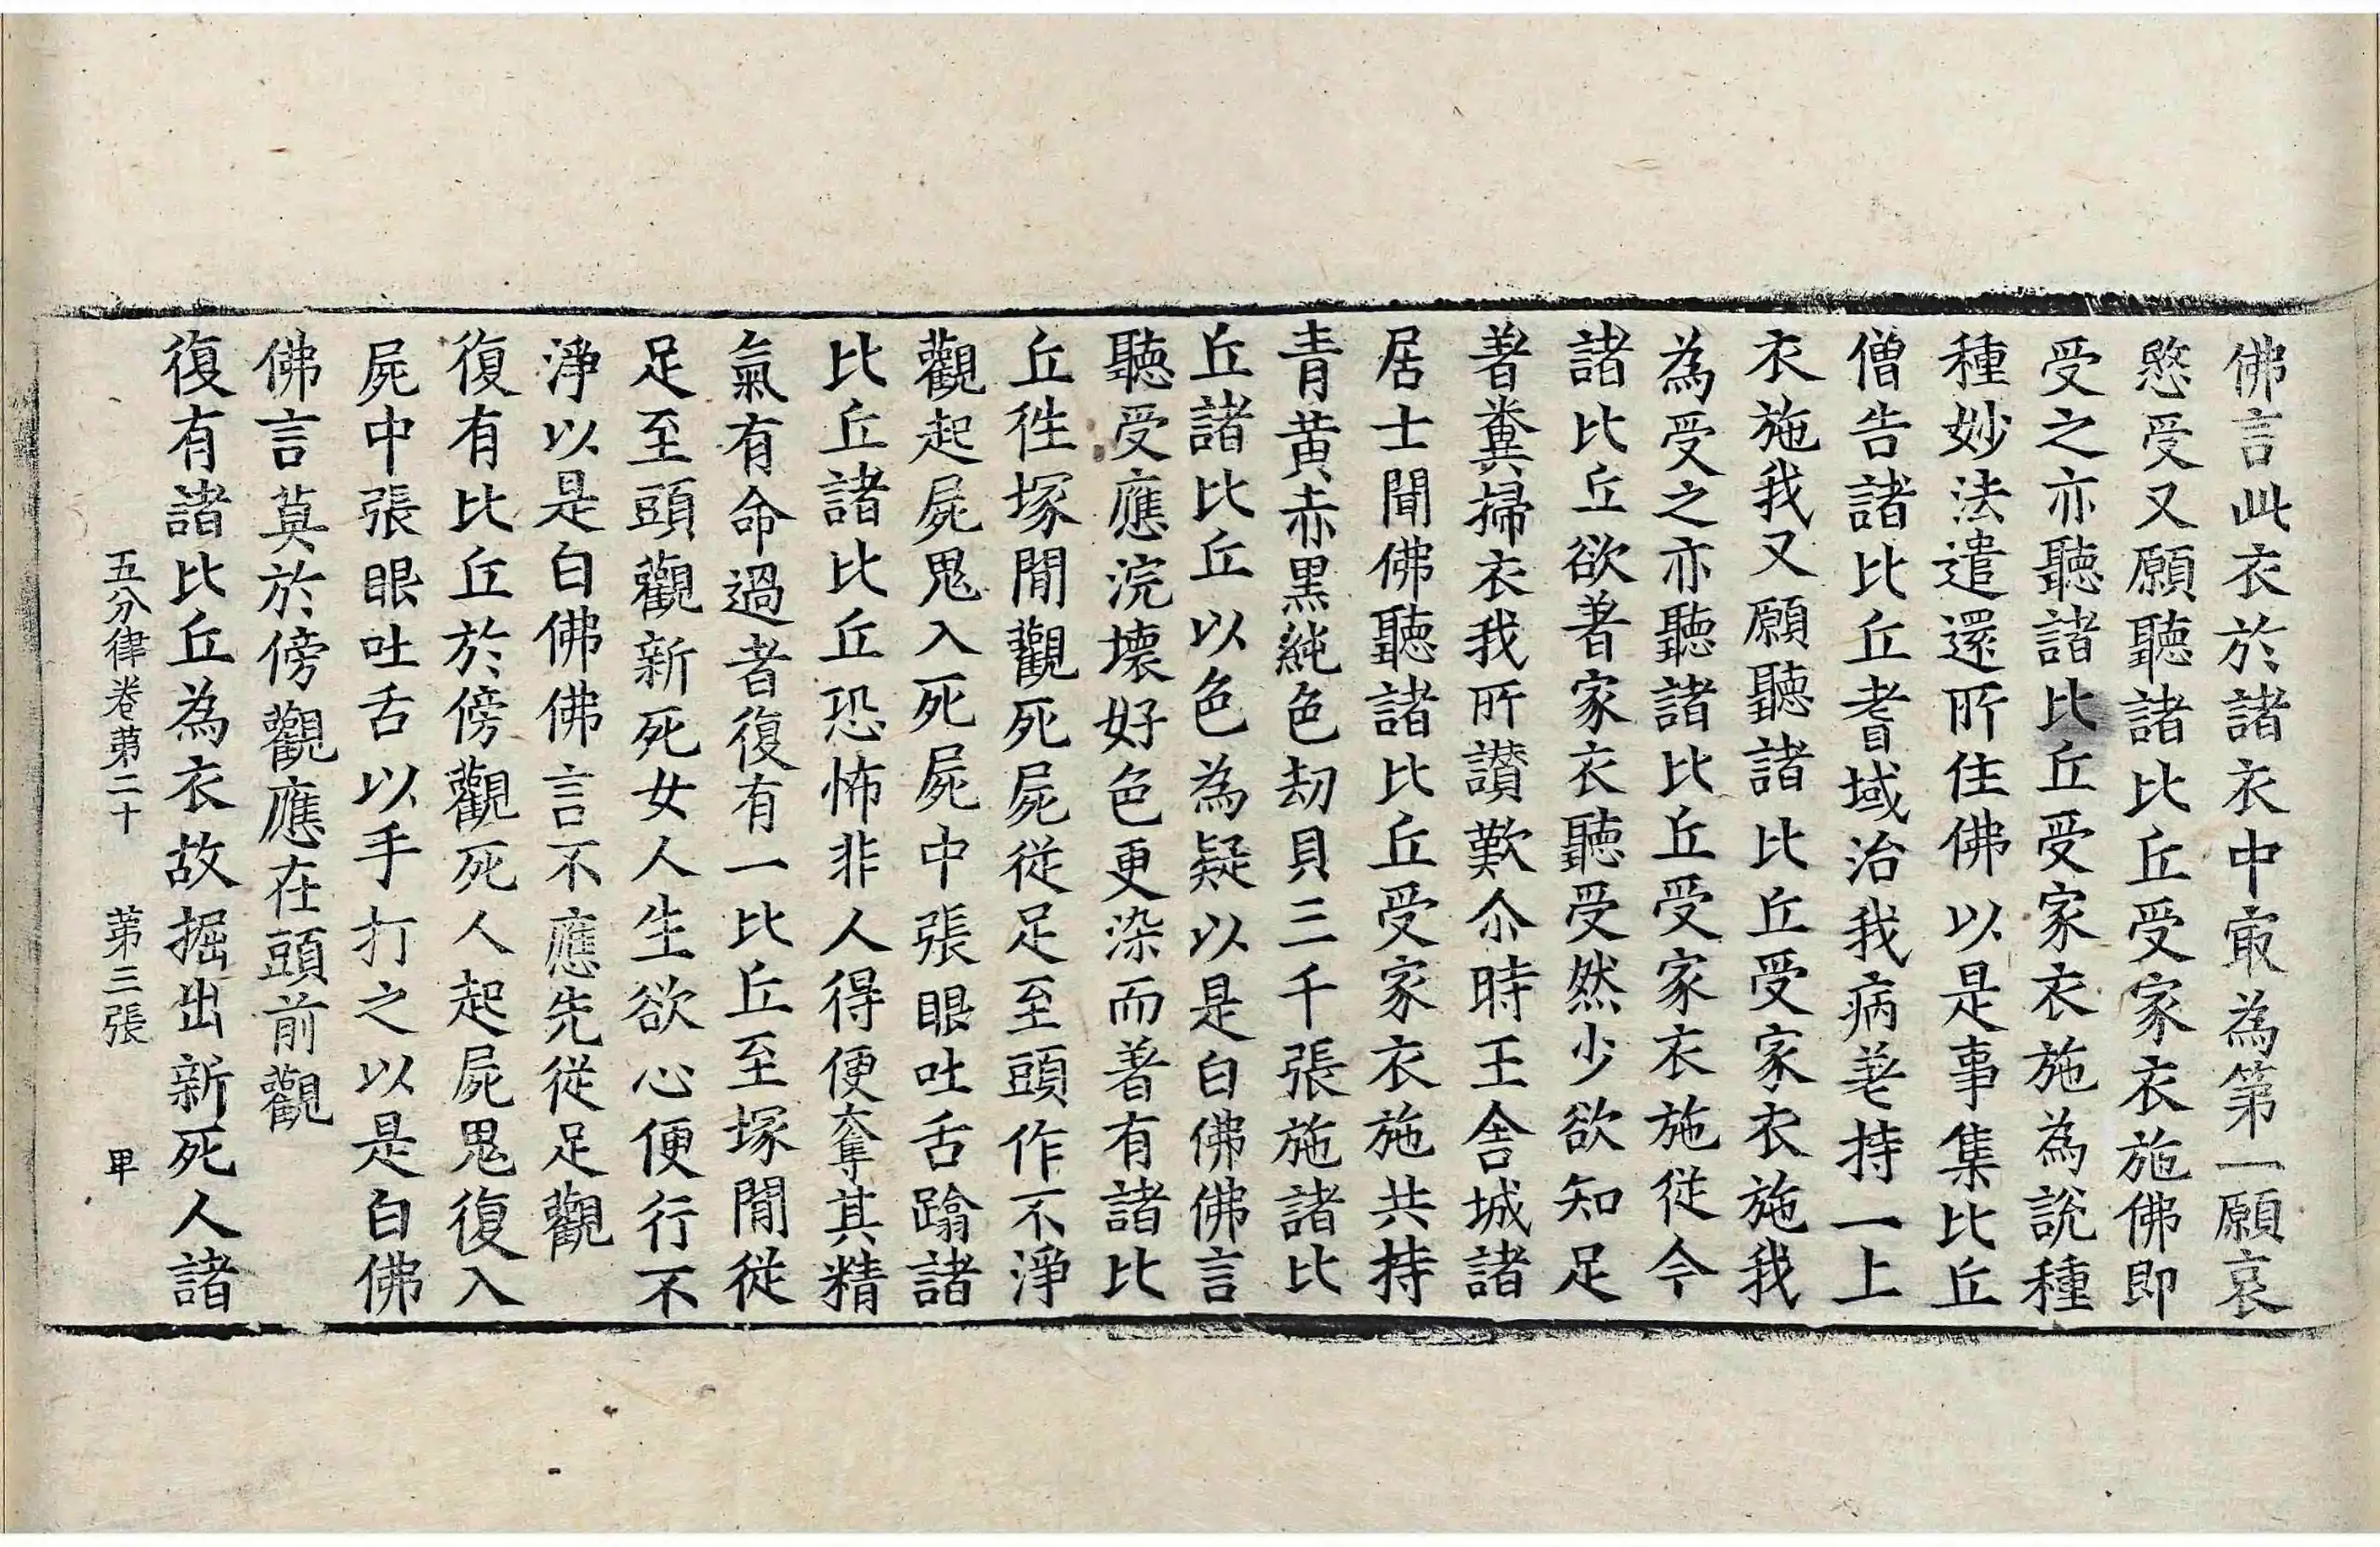 佛言此衣於諸衣中㝡為第一願哀
愍受又願聽諸比丘受家衣施佛即
受之亦聽諸比丘受家衣施為說種
種妙法遣還所住佛以是事集比丘
僧告諸比丘耆域治我病差持一上
衣施我又願聽諸比丘受家衣施我
為受之亦聽諸比丘受家衣施從今
諸比丘欲著家衣聽受然少欲知足
著糞掃衣我所讃歎尒時王舍城諸
居士聞佛聽諸比丘受家衣施共持
青黃赤黑純色劫貝三千張施諸比
丘諸比丘以色為疑以是白佛佛言
聽受應浣壞好色更染而著有諸比
丘徃塚間觀死屍從足至頭作不淨
觀起屍鬼入死屍中張眼吐舌蹹諸
比丘諸比丘恐怖非人得便奪其精
氣有命過者復有一比丘至塚間從
足至頭觀新死女人生欲心便行不
淨以是白佛佛言不應先從足觀
復有比丘於傍觀死人起屍鬼復入
屍中張眼吐舌以手打之以是白佛
佛言莫於傍觀應在頭前觀
復有諸比丘為衣故掘出新死人諸
五分律卷第二十 第三張 甲